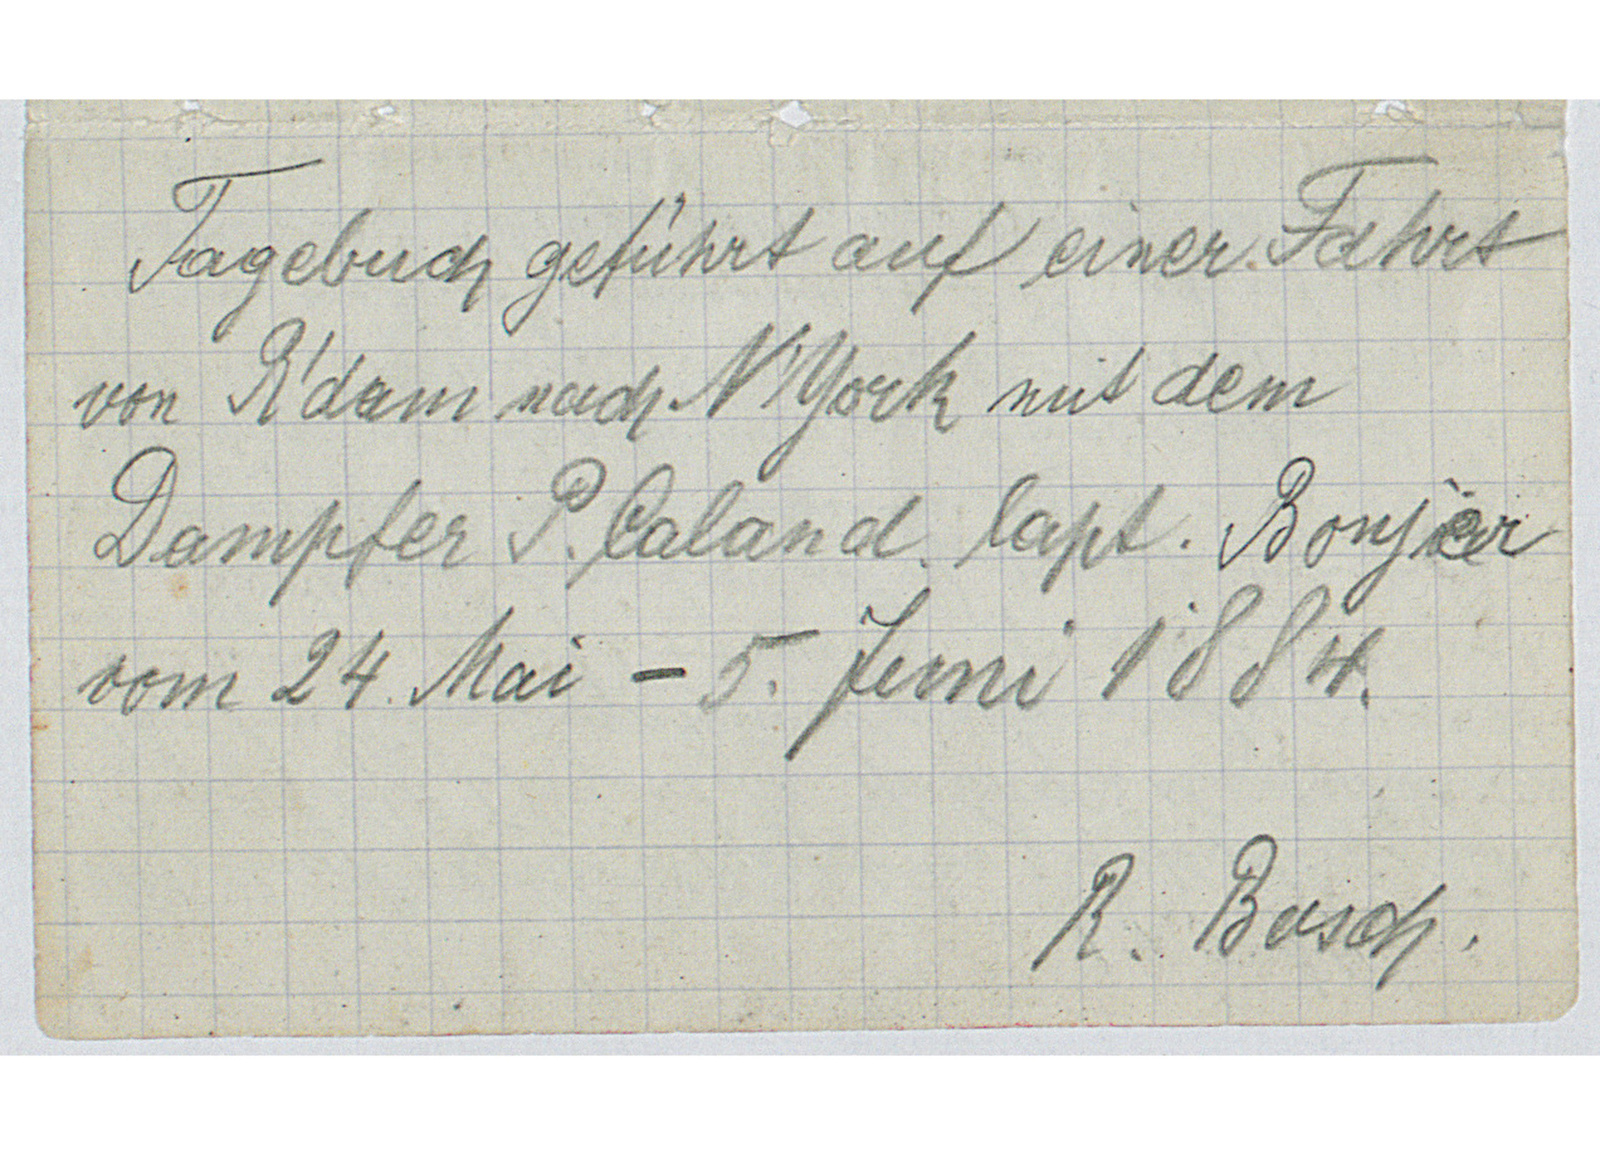 Tagebuch geführt auf einer Fahrt
von R'dam nach N'York mit dem
Dampfer P. Caland. Capt. Bonjer
vom 24. Mai – 5. Juni 1884.
R. Bosch.